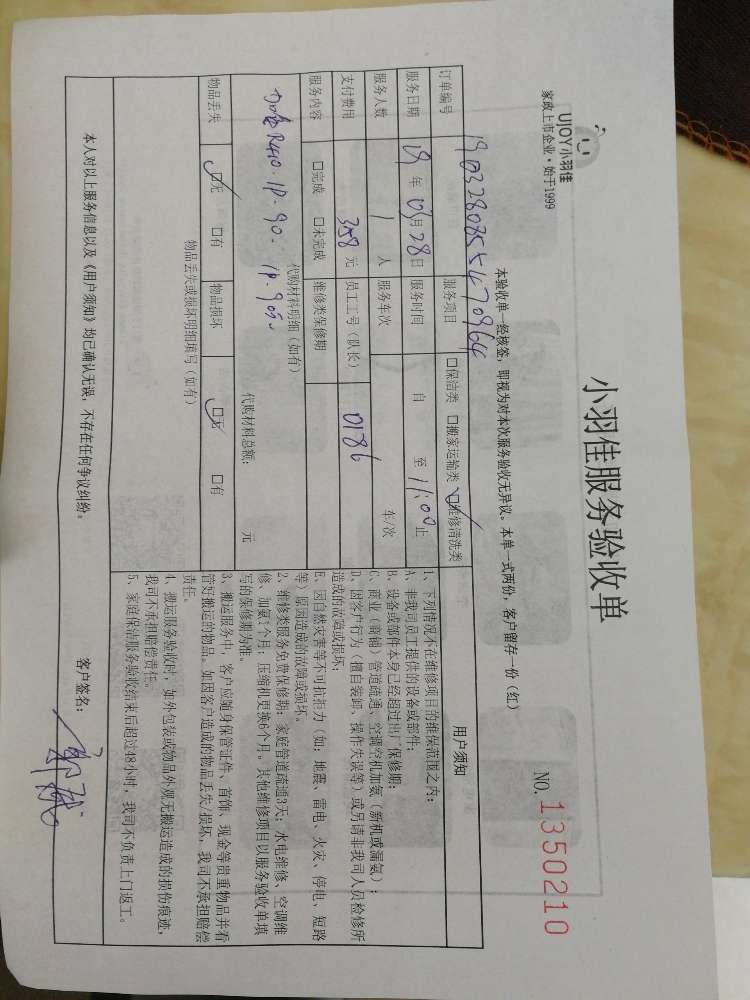 UJOY小羽佳
家政上市企业·始于1999
小羽佳服务验收单
NO. 1350210
本验收单一经核签，即视为对本次服务验收无异议。本单一式两份，客户留存一份（红）
订单编号
服务项目 □保洁类 □搬家运输类 □维修清洗类
服务日期 19 年 03 月 28 日 服务时间 自 至 11:00 止
服务人数 1 人 服务车次 车/次
支付费用 358 元 员工工号（队长） 0186
服务内容 □完成 □未完成 维修类保修期
代购材料明细（如有）
R410. 1P. 90.
代购材料总额： 元
物品丢失 □无 □有 物品损坏 □无 □有
物品丢失或损坏明细填写（如有）
用户须知
1、下列情况不在维修项目的维保范围之内：
A、非我司员工提供的设备或部件；
B、设备或部件本身已经超过出厂保修期；
C、商业（商铺）管道疏通、空调空机加氨（新机或漏氨）；
D、因客户行为（擅自装卸、操作失误等）或另请非我司人员检修所
造成的故障或损坏；
E、因自然灾害等不可抗拒力（如：地震、雷电、火灾、停电、短路
等）原因造成的故障或损坏。
2、维修类服务免费保修期：家庭管道疏通3天；水电维修、空调维
修、加氨1个月；压缩机更换6个月。其他维修项目以服务验收单填
写的保修期为准。
3、搬运服务中，客户应随身保管证件、首饰、现金等贵重物品并看
管好搬运的物品。如因客户造成的物品丢失/损坏，我司不承担赔偿
责任。
4、搬运服务验收时，如外包装或物品外观无搬运造成的损伤痕迹，
我司不承担赔偿责任。
5、家庭保洁服务验收结束后超过48小时，我司不负责上门返工。
本人对以上服务信息以及《用户须知》均已确认无误，不存在任何争议纠纷。
客户签名：